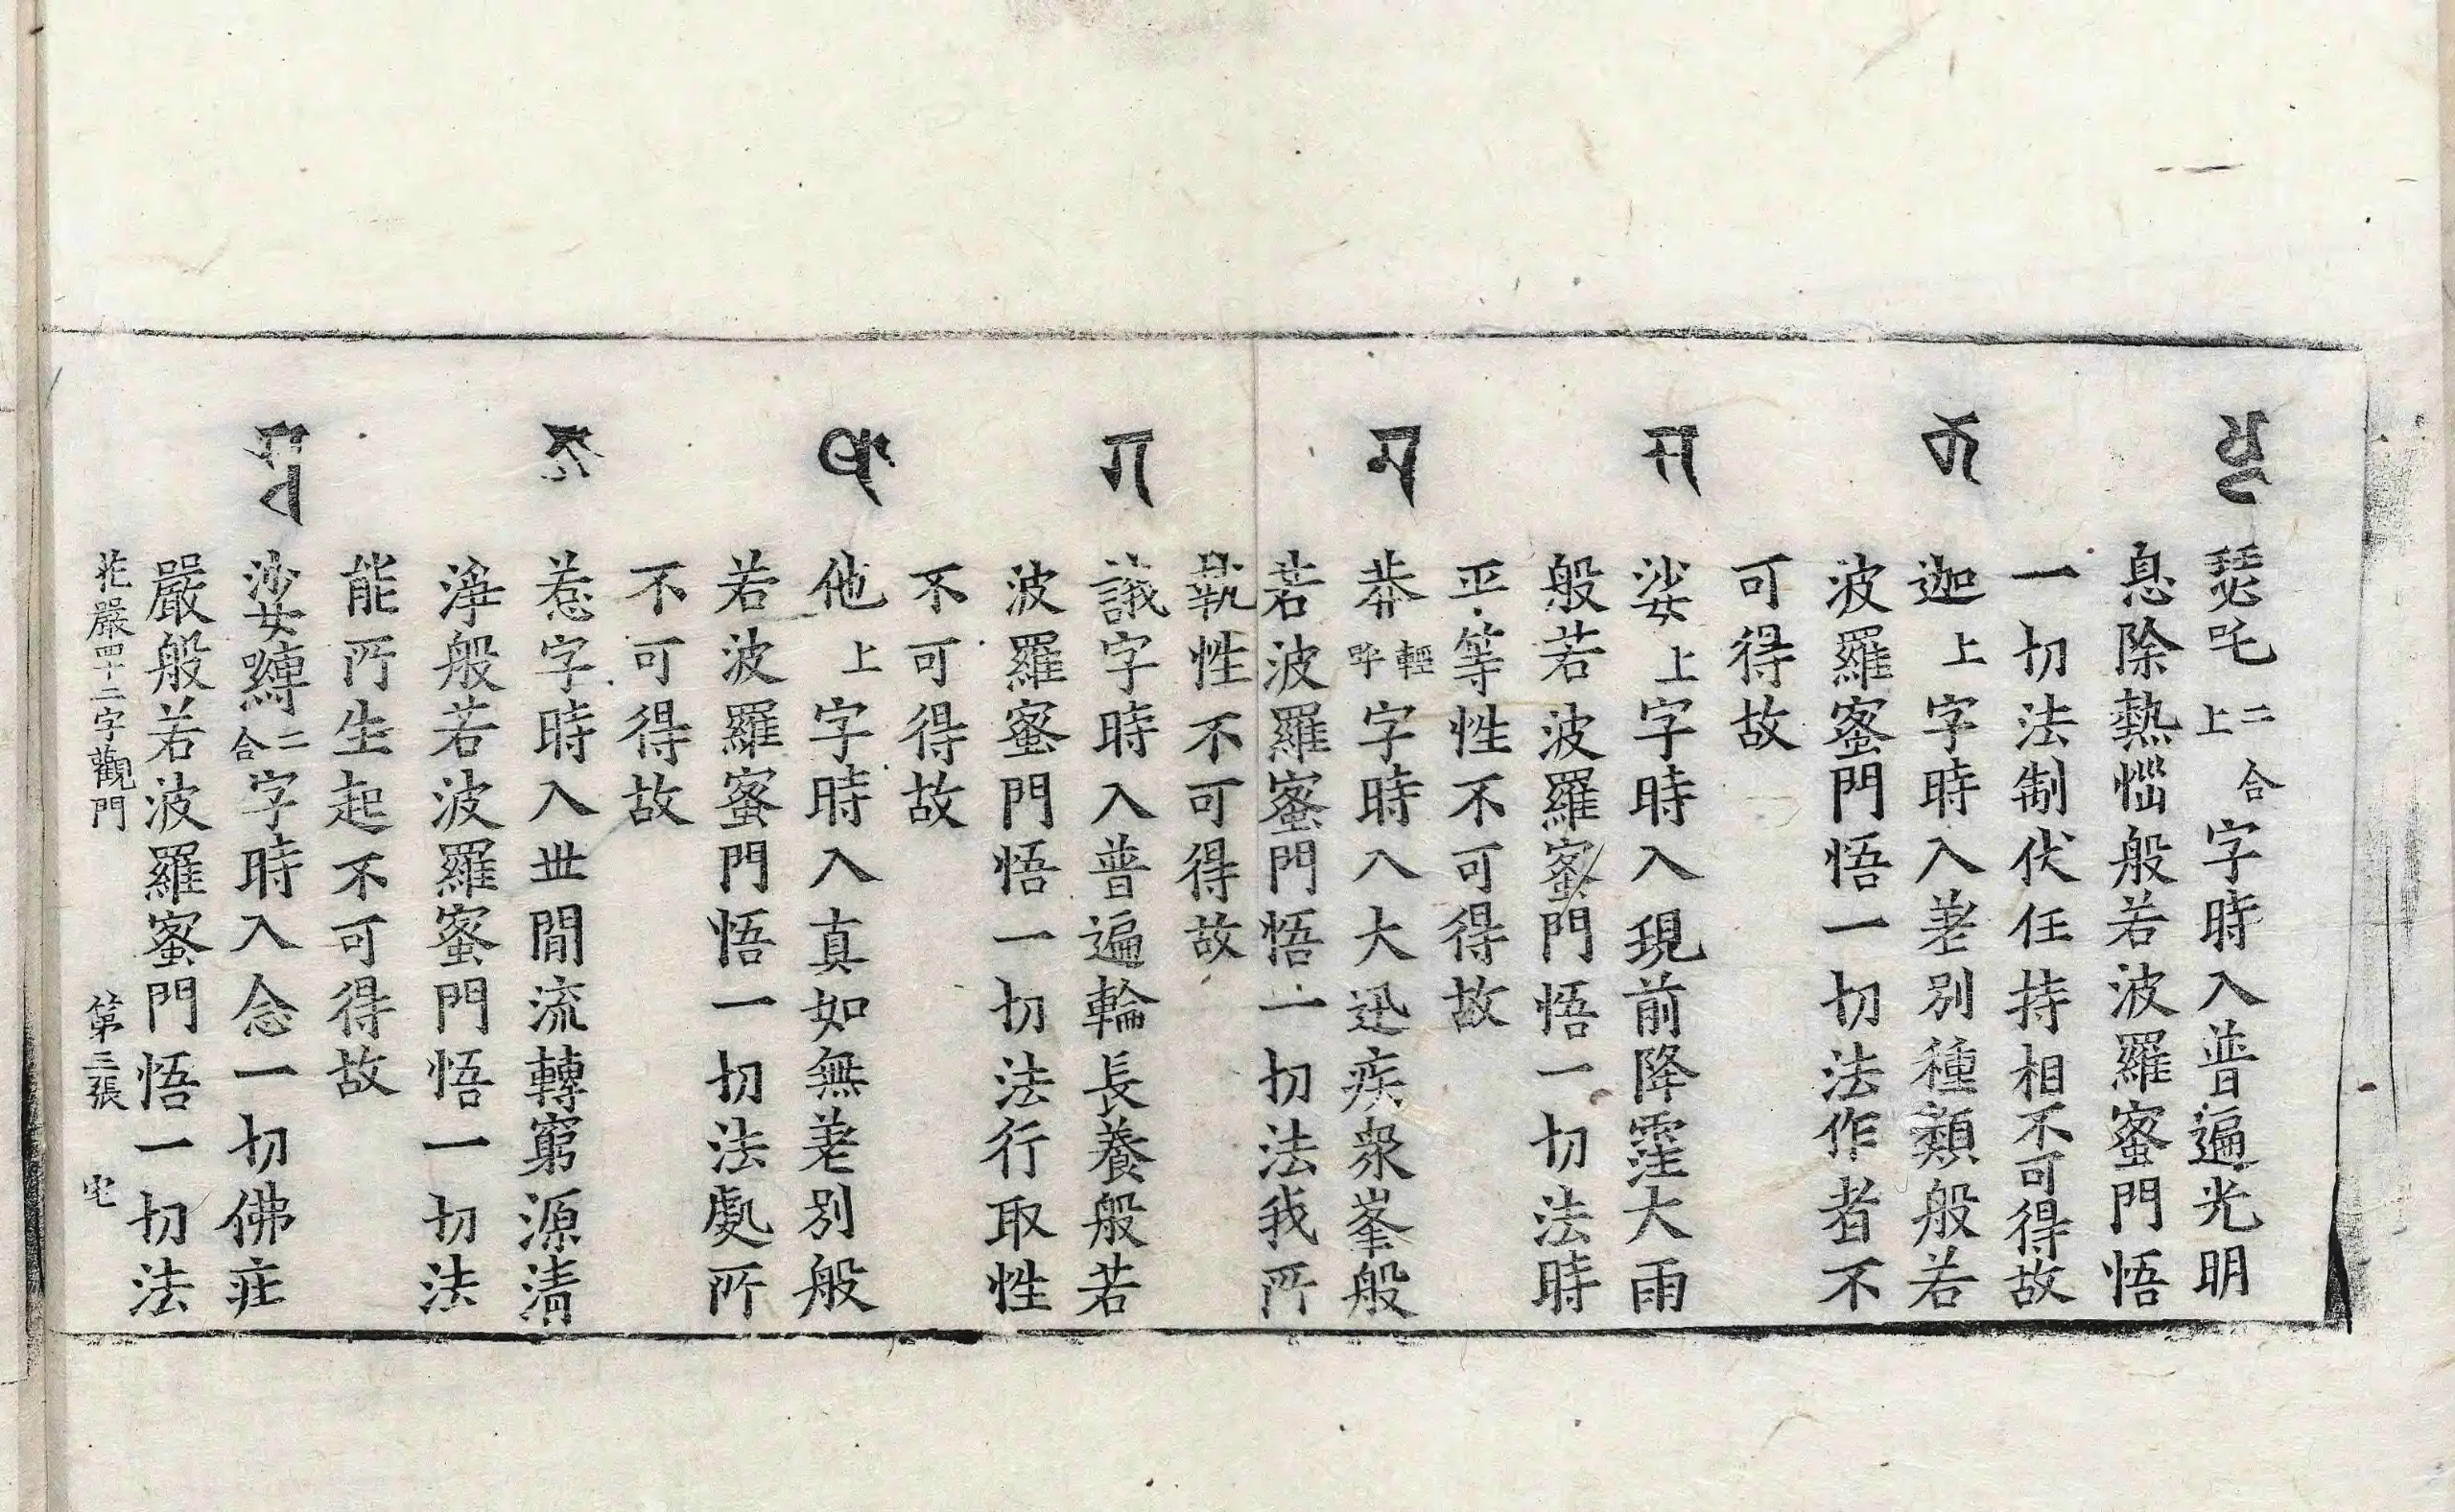 𑖬𑖿𑖘 瑟吒二合上字時入普遍光明
息除熱惱般若波羅蜜門悟
一切法制伏任持相不可得故
𑖎 迦上字時入差別種類般若
波羅蜜門悟一切法作者不
可得故
𑖭 娑上字時入現前降霔大雨
般若波羅蜜門悟一切法時
平等性不可得故
𑖦 莽輕呼字時入大迅疾衆峯般
若波羅蜜門悟一切法我所
執性不可得故
𑖐 誐字時入普遍輪長養般若
波羅蜜門悟一切法行取性
不可得故
𑖞 他上字時入真如無差別般
若波羅蜜門悟一切法處所
不可得故
𑖕 惹字時入世間流轉窮源清
淨般若波羅蜜門悟一切法
能所生起不可得故
𑖭𑖿𑖪 娑嚩二合字時入念一切佛莊
嚴般若波羅蜜門悟一切法
花嚴四十二字觀門 第三張